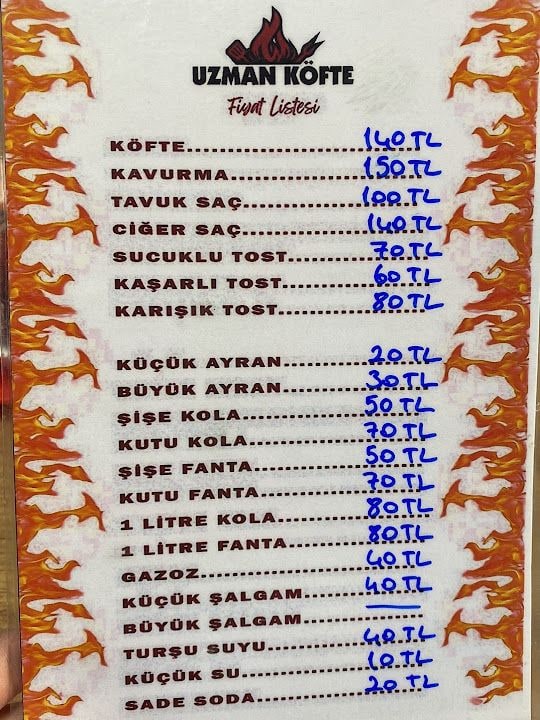 UZMAN KÖFTE
Fiyat Listesi
KÖFTE..................140 TL
KAVURMA..................150 TL
TAVUK SAÇ..................100 TL
CİĞER SAÇ..................140 TL
SUCUKLU TOST..................70 TL
KAŞARLI TOST..................60 TL
KARIŞIK TOST..................80 TL
KÜÇÜK AYRAN..................20 TL
BÜYÜK AYRAN..................30 TL
ŞİŞE KOLA..................50 TL
KUTU KOLA..................70 TL
ŞİŞE FANTA..................50 TL
KUTU FANTA..................70 TL
1 LİTRE KOLA..................80 TL
1 LİTRE FANTA..................80 TL
GAZOZ..................40 TL
KÜÇÜK ŞALGAM..................40 TL
BÜYÜK ŞALGAM..................—
TURŞU SUYU..................40 TL
KÜÇÜK SU..................10 TL
SADE SODA..................20 TL